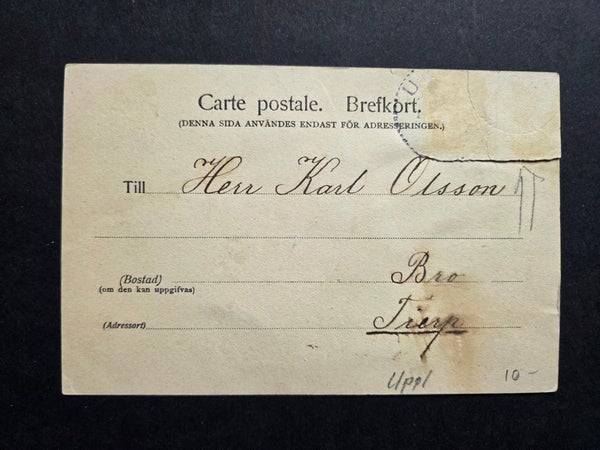 Carte postale. Brefkort.
(DENNA SIDA ANVÄNDES ENDAST FÖR ADRESSERINGEN.)
U
Till Herr Karl Olsson
(Bostad) Bro
(om den kan uppgifvas)
(Adressort) Tierp
Uppl 10-